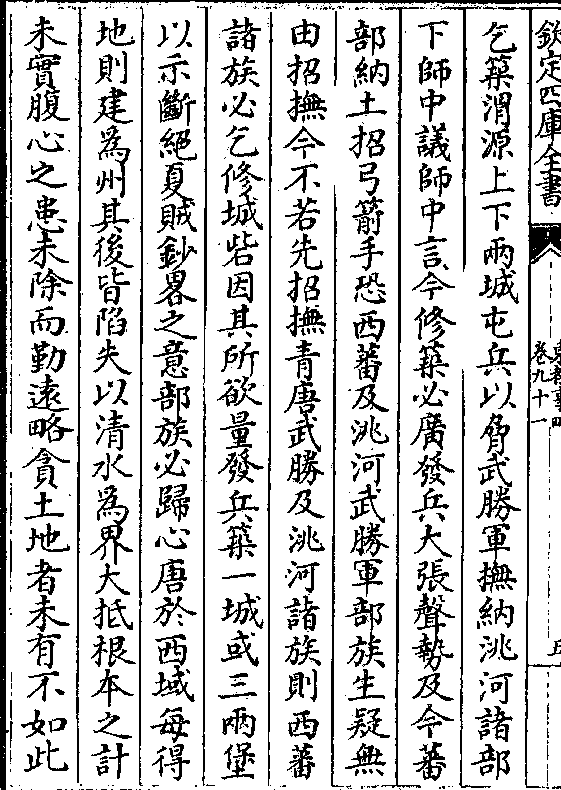 欽定四庫全書
卷九十一
乞築渭源上下兩城屯兵以脅武勝軍撫納洮河諸部
下師中議師中言今修築必廣發兵大張聲勢及令蕃
部納土招弓箭手恐西蕃及洮河武勝軍部族生疑無
由招撫今不若先招撫青唐武勝及洮河諸族則西蕃
諸族必乞修城砦因其所欲量發兵築一城或三兩堡
以示斷絕夏賊鈔畧之意部族必歸心唐於西域每得
地則建為州其後皆陷失以清水為界大抵根本之計
未實腹心之患未除而勤遠略貪土地者未有不如此